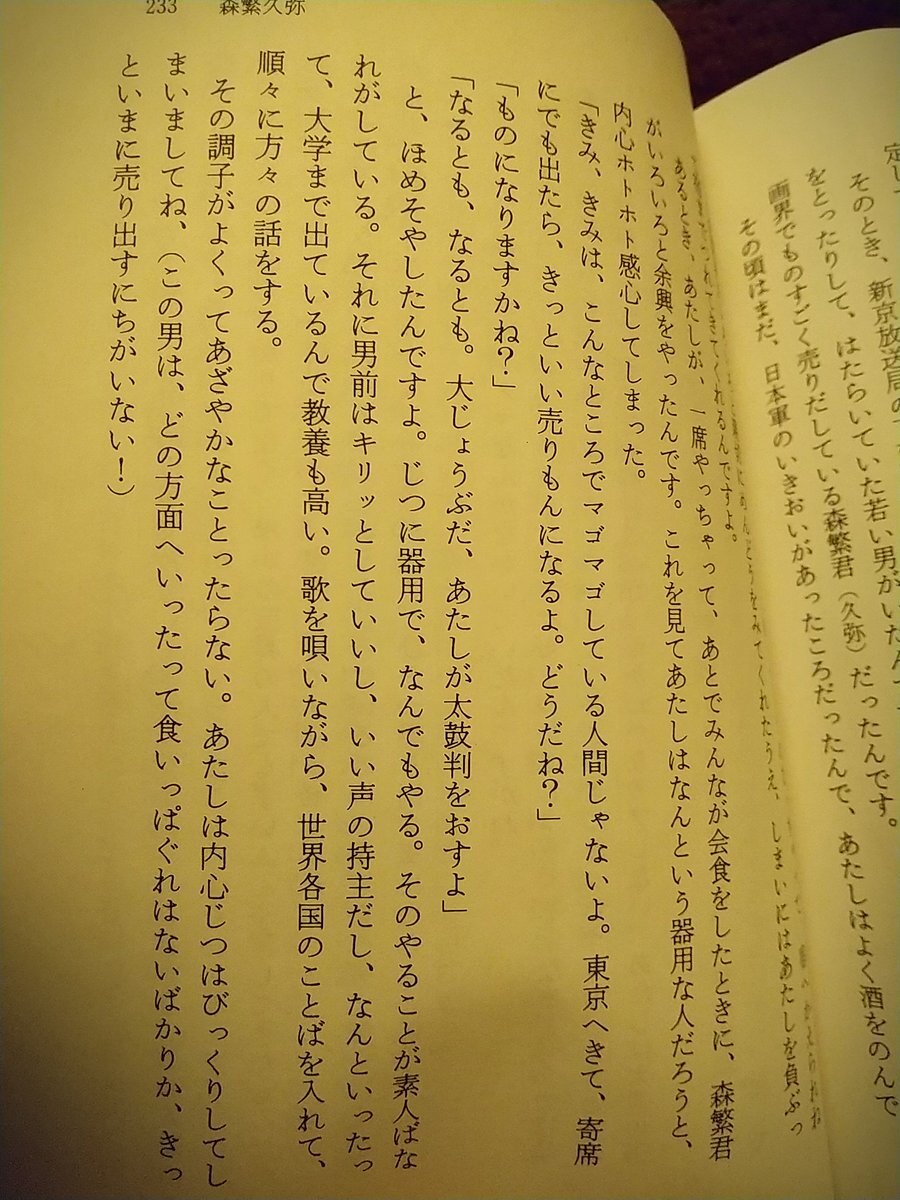 233 森繁久弥
定し
そのとき、新京放送局の
をとったりして、はたらいていた若い男がいたんで
画界でものすごく売りだしている森繁君（久弥）だったんです。
その頃はまだ、日本軍のいきおいがあったころだったんで、あたしはよく酒をのんで
めんどうをみてくれたうえ、しまいにはあたしを負ぶっ
てきてくれるんですよ。
あるとき、あたしが、一席やっちゃって、あとでみんなが会食をしたときに、森繁君
がいろいろと余興をやったんです。これを見てあたしはなんという器用な人だろうと、
内心ホトホト感心してしまった。
「きみ、きみは、こんなところでマゴマゴしている人間じゃないよ。東京へきて、寄席
にでも出たら、きっといい売りもんになるよ。どうだね？」
「ものになりますかね？」
「なるとも、なるとも。大じょうぶだ、あたしが太鼓判をおすよ」
と、ほめそやしたんですよ。じつに器用で、なんでもやる。そのやることが素人ばな
れがしている。それに男前はキリッとしていいし、いい声の持主だし、なんといったっ
て、大学まで出ているんで教養も高い。歌を唄いながら、世界各国のことばを入れて、
順々に方々の話をする。
その調子がよくってあざやかなことったらない。あたしは内心じつはびっくりしてし
まいましてね、（この男は、どの方面へいったって食いっぱぐれはないばかりか、きっ
といまに売り出すにちがいない！）